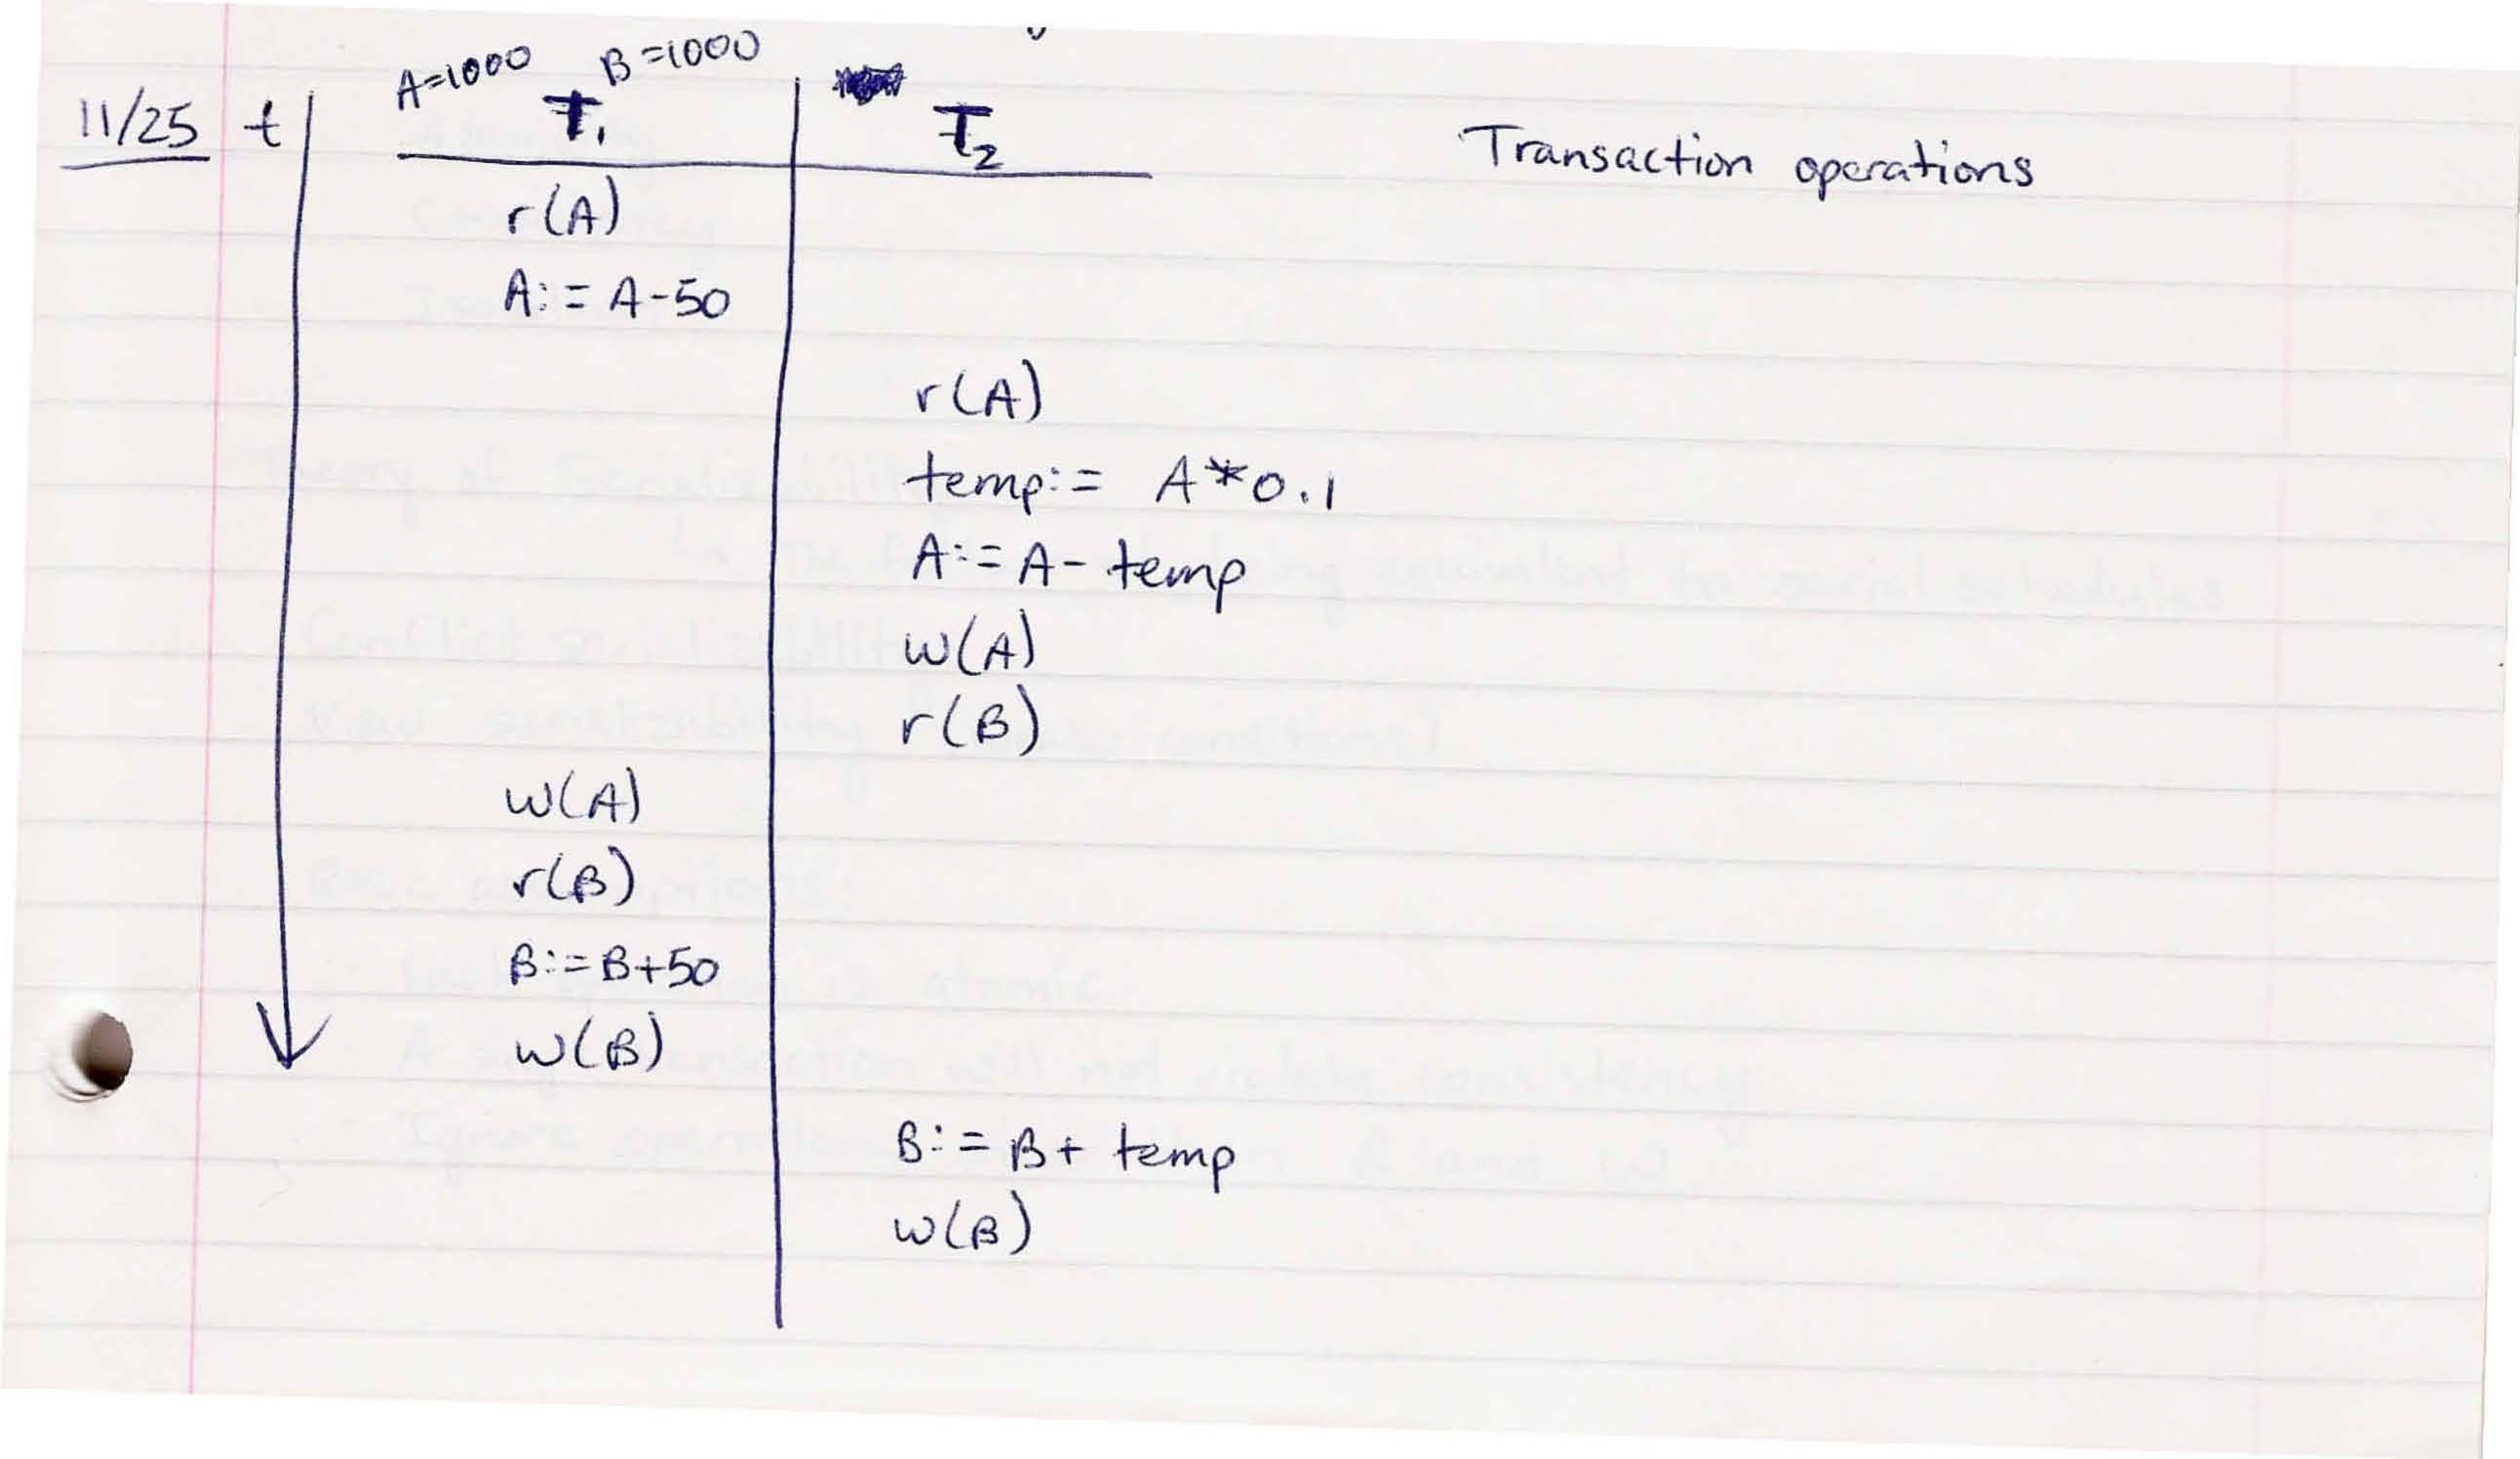 A=1000 B=1000
11/25 t T₁ T₂ Transaction operations
r(A)
A:= A-50
r(A)
temp:= A*0.1
A:= A- temp
w(A)
r(B)
w(A)
r(B)
B:=B+50
w(B)
B:= B+ temp
w(B)